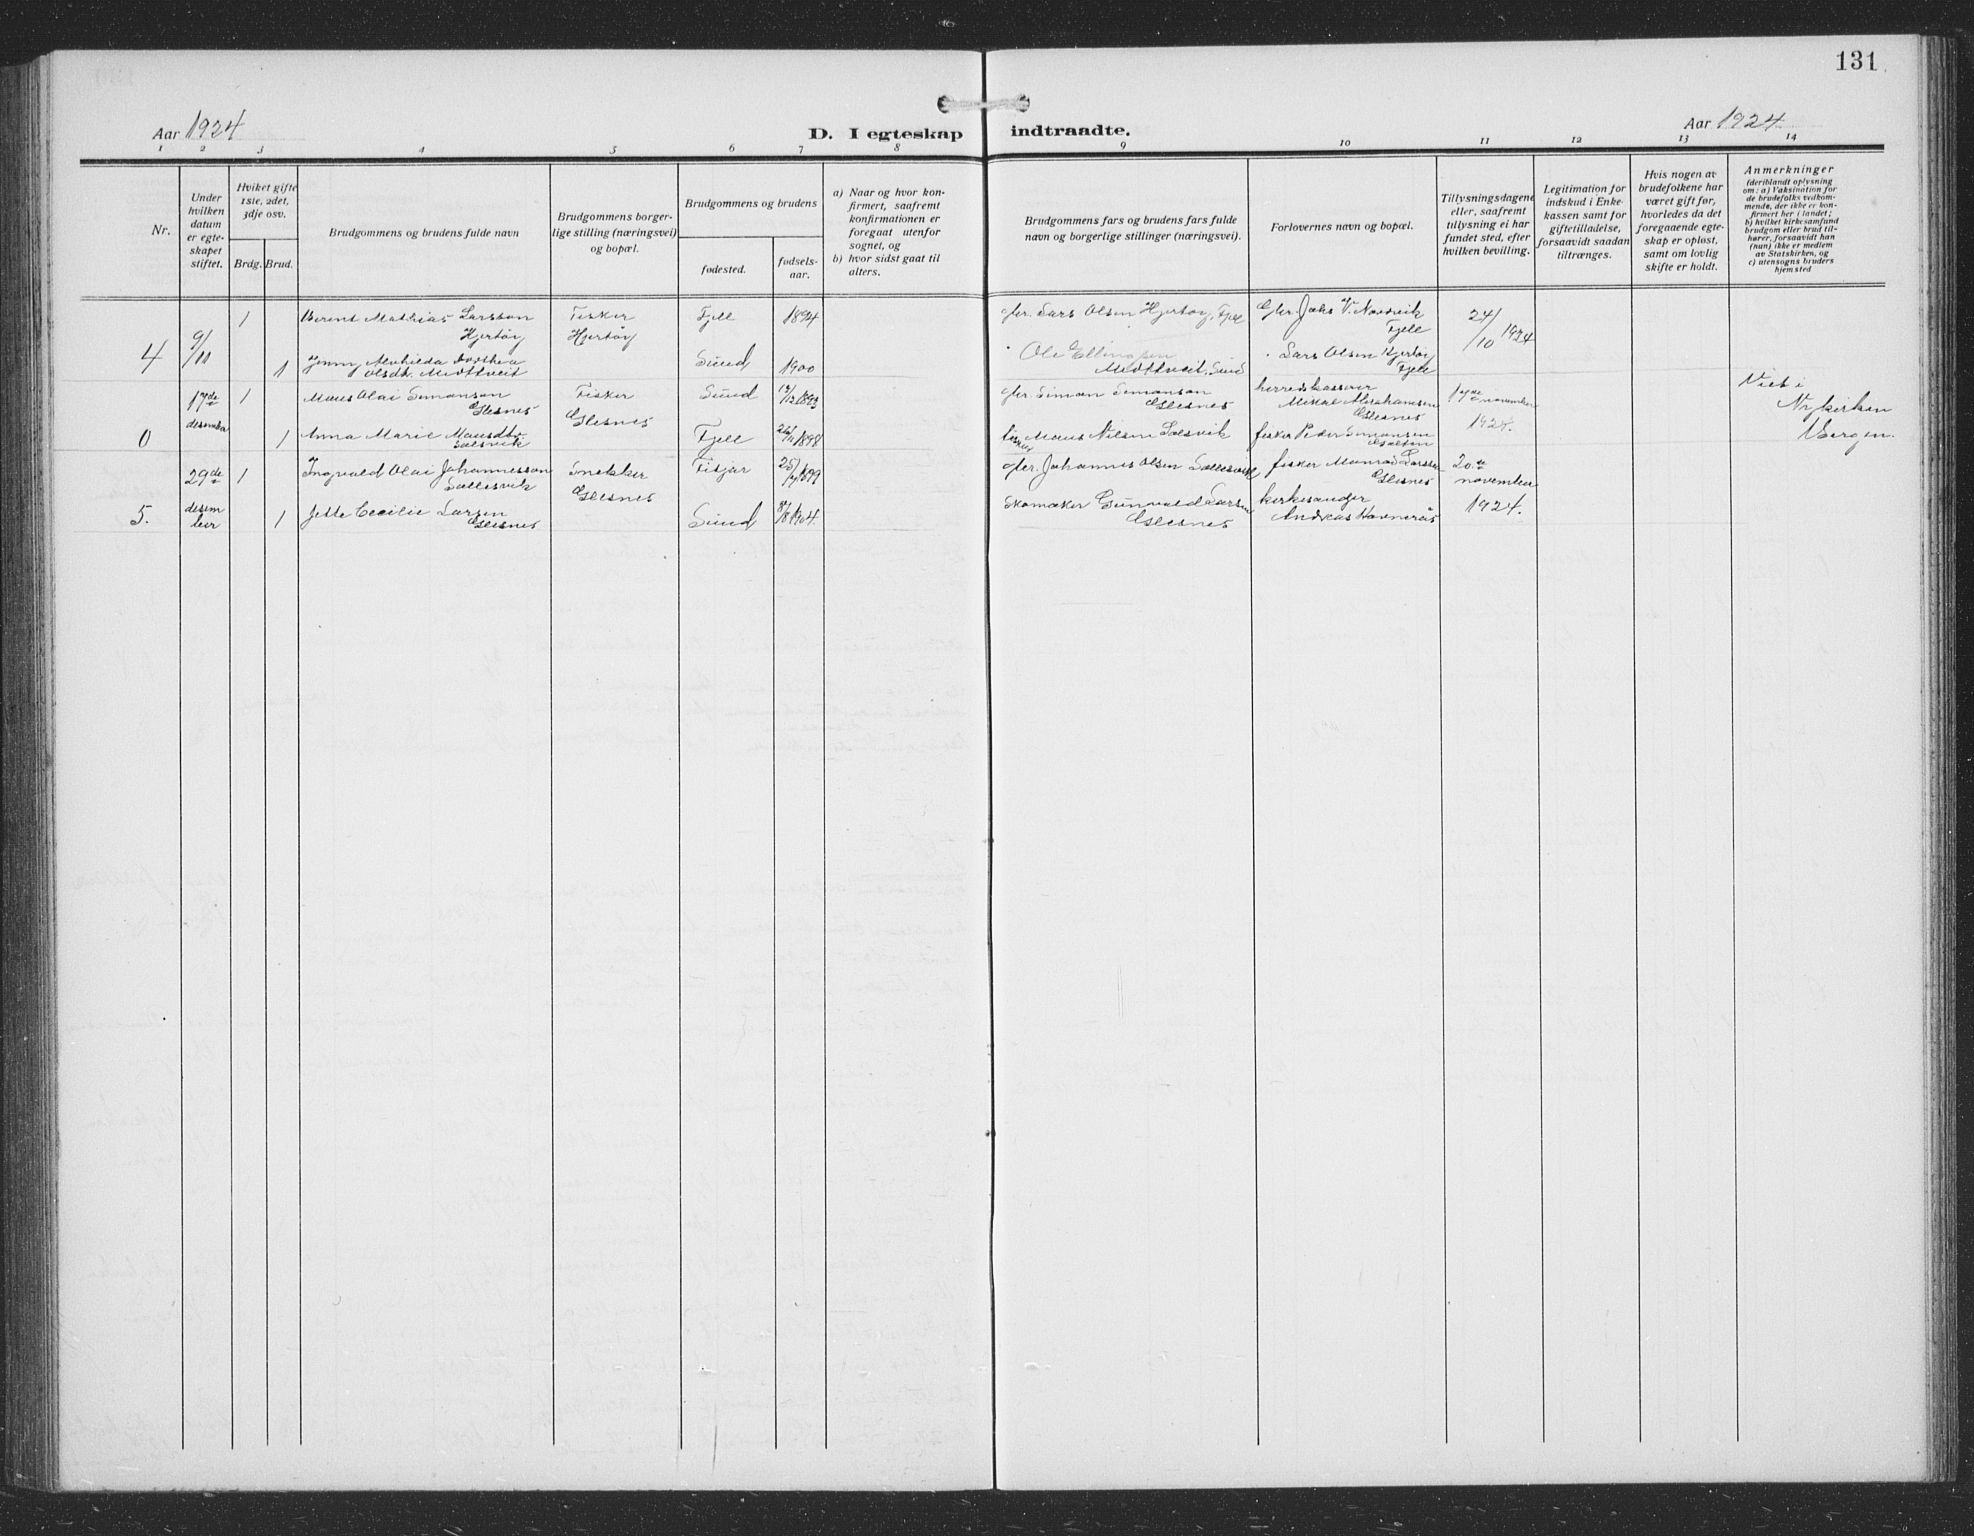 131
Aar 1924
D. I egteskap indtraadte.
Aar 1924
1 2 3 4 5 6 7 8 9 10 11 12 13 14
Nr.
Under hvilken datum er egteskapet stiftet.
Hviket gifte 1ste, 2det, 3dje osv.
Brdg. Brud.
Brudgommens og brudens fulde navn
Brudgommens borgerlige stilling (næringsvei) og bopæl.
Brudgommens og brudens
fødested.
fødselsaar.
a) Naar og hvor konfirmert, saafremt konfirmationen er foregaat utenfor sognet, og
b) hvor sidst gaat til alters.
Brudgommens fars og brudens fars fulde navn og borgerlige stillinger (næringsvei).
Forlovernes navn og bopæl.
Tillysningsdagene eller, saafremt tillysning ei har fundet sted, efter hvilken bevilling.
Legitimation for indskud i Enkekassen samt for giftetilladelse, forsaavidt saadan tiltrænges.
Hvis nogen av brudefolkene har været gift før, hvorledes da det foregaaende egteskap er opløst, samt om lovlig skifte er holdt.
Anmerkninger
(deriblandt oplysning om: a) Vaksination for de brudefolks vedkommende, der ikke er konfirmert her i landet; b) hvilket kirkesamfund brudgom eller brud tilhører, forsaavidt han (hun) ikke er medlem av Statskirken, og c) utensogns bruders hjemsted
4 9/11 1 Berent Mathias Larsson Hjertøy Fisker Hjertøy Fjell 1894 gbr. Lars Olsen Hjertøy, Fjell Gbr. Johs V. Nordvik Fjell 24/10 1924
1 Jenny Alvhilda Dorthea Olsdt. Midttveit Sund 1900 Ole Ellingsen Midttveit, Sund Lars Olsen Hjertøy Fjell
0 17de desember 1 Maus Olai Simonson Glesnes Fisker Glesnes Sund 1893 gbr. Simon Simonson Glesnes herredskasserer Mikal Abrahamsen Glesnes 17de november 1924. Viet i Nykirken Bergen.
1 Anna Marie Mausdtr Solsvik Fjell 1898 fisker Maus Nilsen Solsvik fisker Peder Simonsen
5. 29de desember 1 Ingvald Olai Johannesson Sællesvik Snekker Glesnes Fitjar 1899 gbr. Johannes Olsen Sællesvik fisker Monrad Larssen Glesnes 20.de november 1924.
1 Jette Cecilie Larsen Glesnes Sund 8/8 1904 Skomaker Gunvald Larsen Glesnes kirkesanger Andreas Havnerås